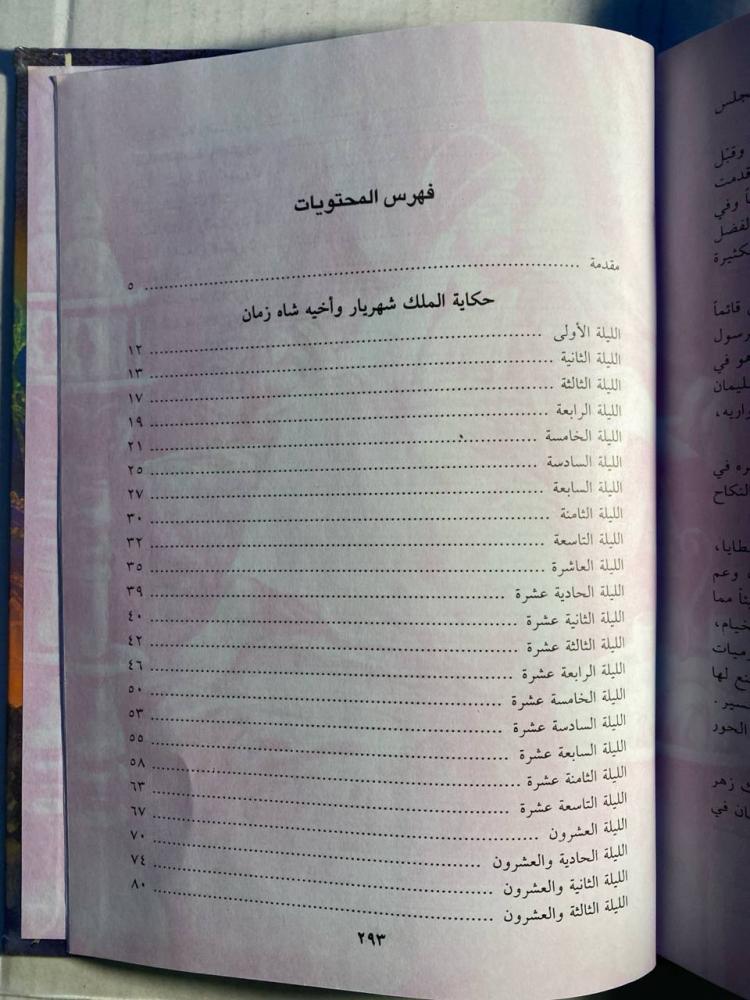 فهرس المحتويات
مقدمة ........................................ ٥
حكاية الملك شهريار وأخيه شاه زمان
الليلة الأولى ........................................ ١٢
الليلة الثانية ........................................ ١٣
الليلة الثالثة ........................................ ١٧
الليلة الرابعة ........................................ ١٩
الليلة الخامسة ........................................ ٢١
الليلة السادسة ........................................ ٢٥
الليلة السابعة ........................................ ٢٧
الليلة الثامنة ........................................ ٣٠
الليلة التاسعة ........................................ ٣٢
الليلة العاشرة ........................................ ٣٥
الليلة الحادية عشرة ........................................ ٣٩
الليلة الثانية عشرة ........................................ ٤٠
الليلة الثالثة عشرة ........................................ ٤٢
الليلة الرابعة عشرة ........................................ ٤٦
الليلة الخامسة عشرة ........................................ ٥٠
الليلة السادسة عشرة ........................................ ٥٣
الليلة السابعة عشرة ........................................ ٥٥
الليلة الثامنة عشرة ........................................ ٥٨
الليلة التاسعة عشرة ........................................ ٦٣
الليلة العشرون ........................................ ٦٧
الليلة الحادية والعشرون ........................................ ٧٠
الليلة الثانية والعشرون ........................................ ٧٤
الليلة الثالثة والعشرون ........................................ ٨٠
٢٩٣
وقبّل
وفي
قائماً
هو في
في
النكاح
وعم
مما
لها
الحور
زهر
في